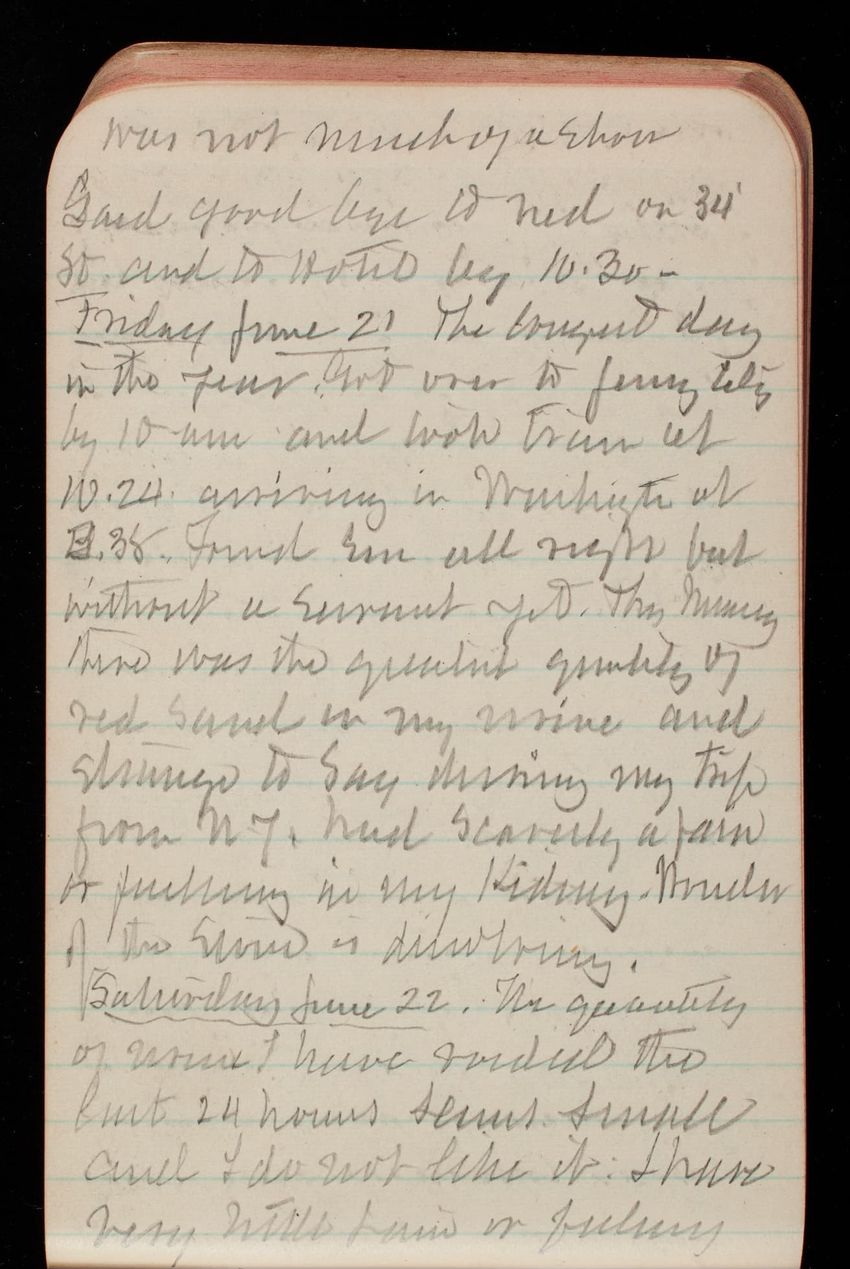 was not much of a show
Said good bye to Ned on 34
St. and to Hotel by 10.30 -
Friday June 21 The longest day
in the year. Got over to Jersey City
by 10 am and took train at
10.24. arriving in Washingtn at
3.35. Found Em all right but
without a servant yet. This Morning
there was the greatest quantity of
red sand in my urine and
strange to say during my trip
from N-Y. had scarcely a pain
or feeling in my Kidney. Wonder
if the stone is dissolving.
Saturday June 22. The quantity
of urine I have voided the
last 24 hours seems small
and I do not like it. I have
very little pain or feeling